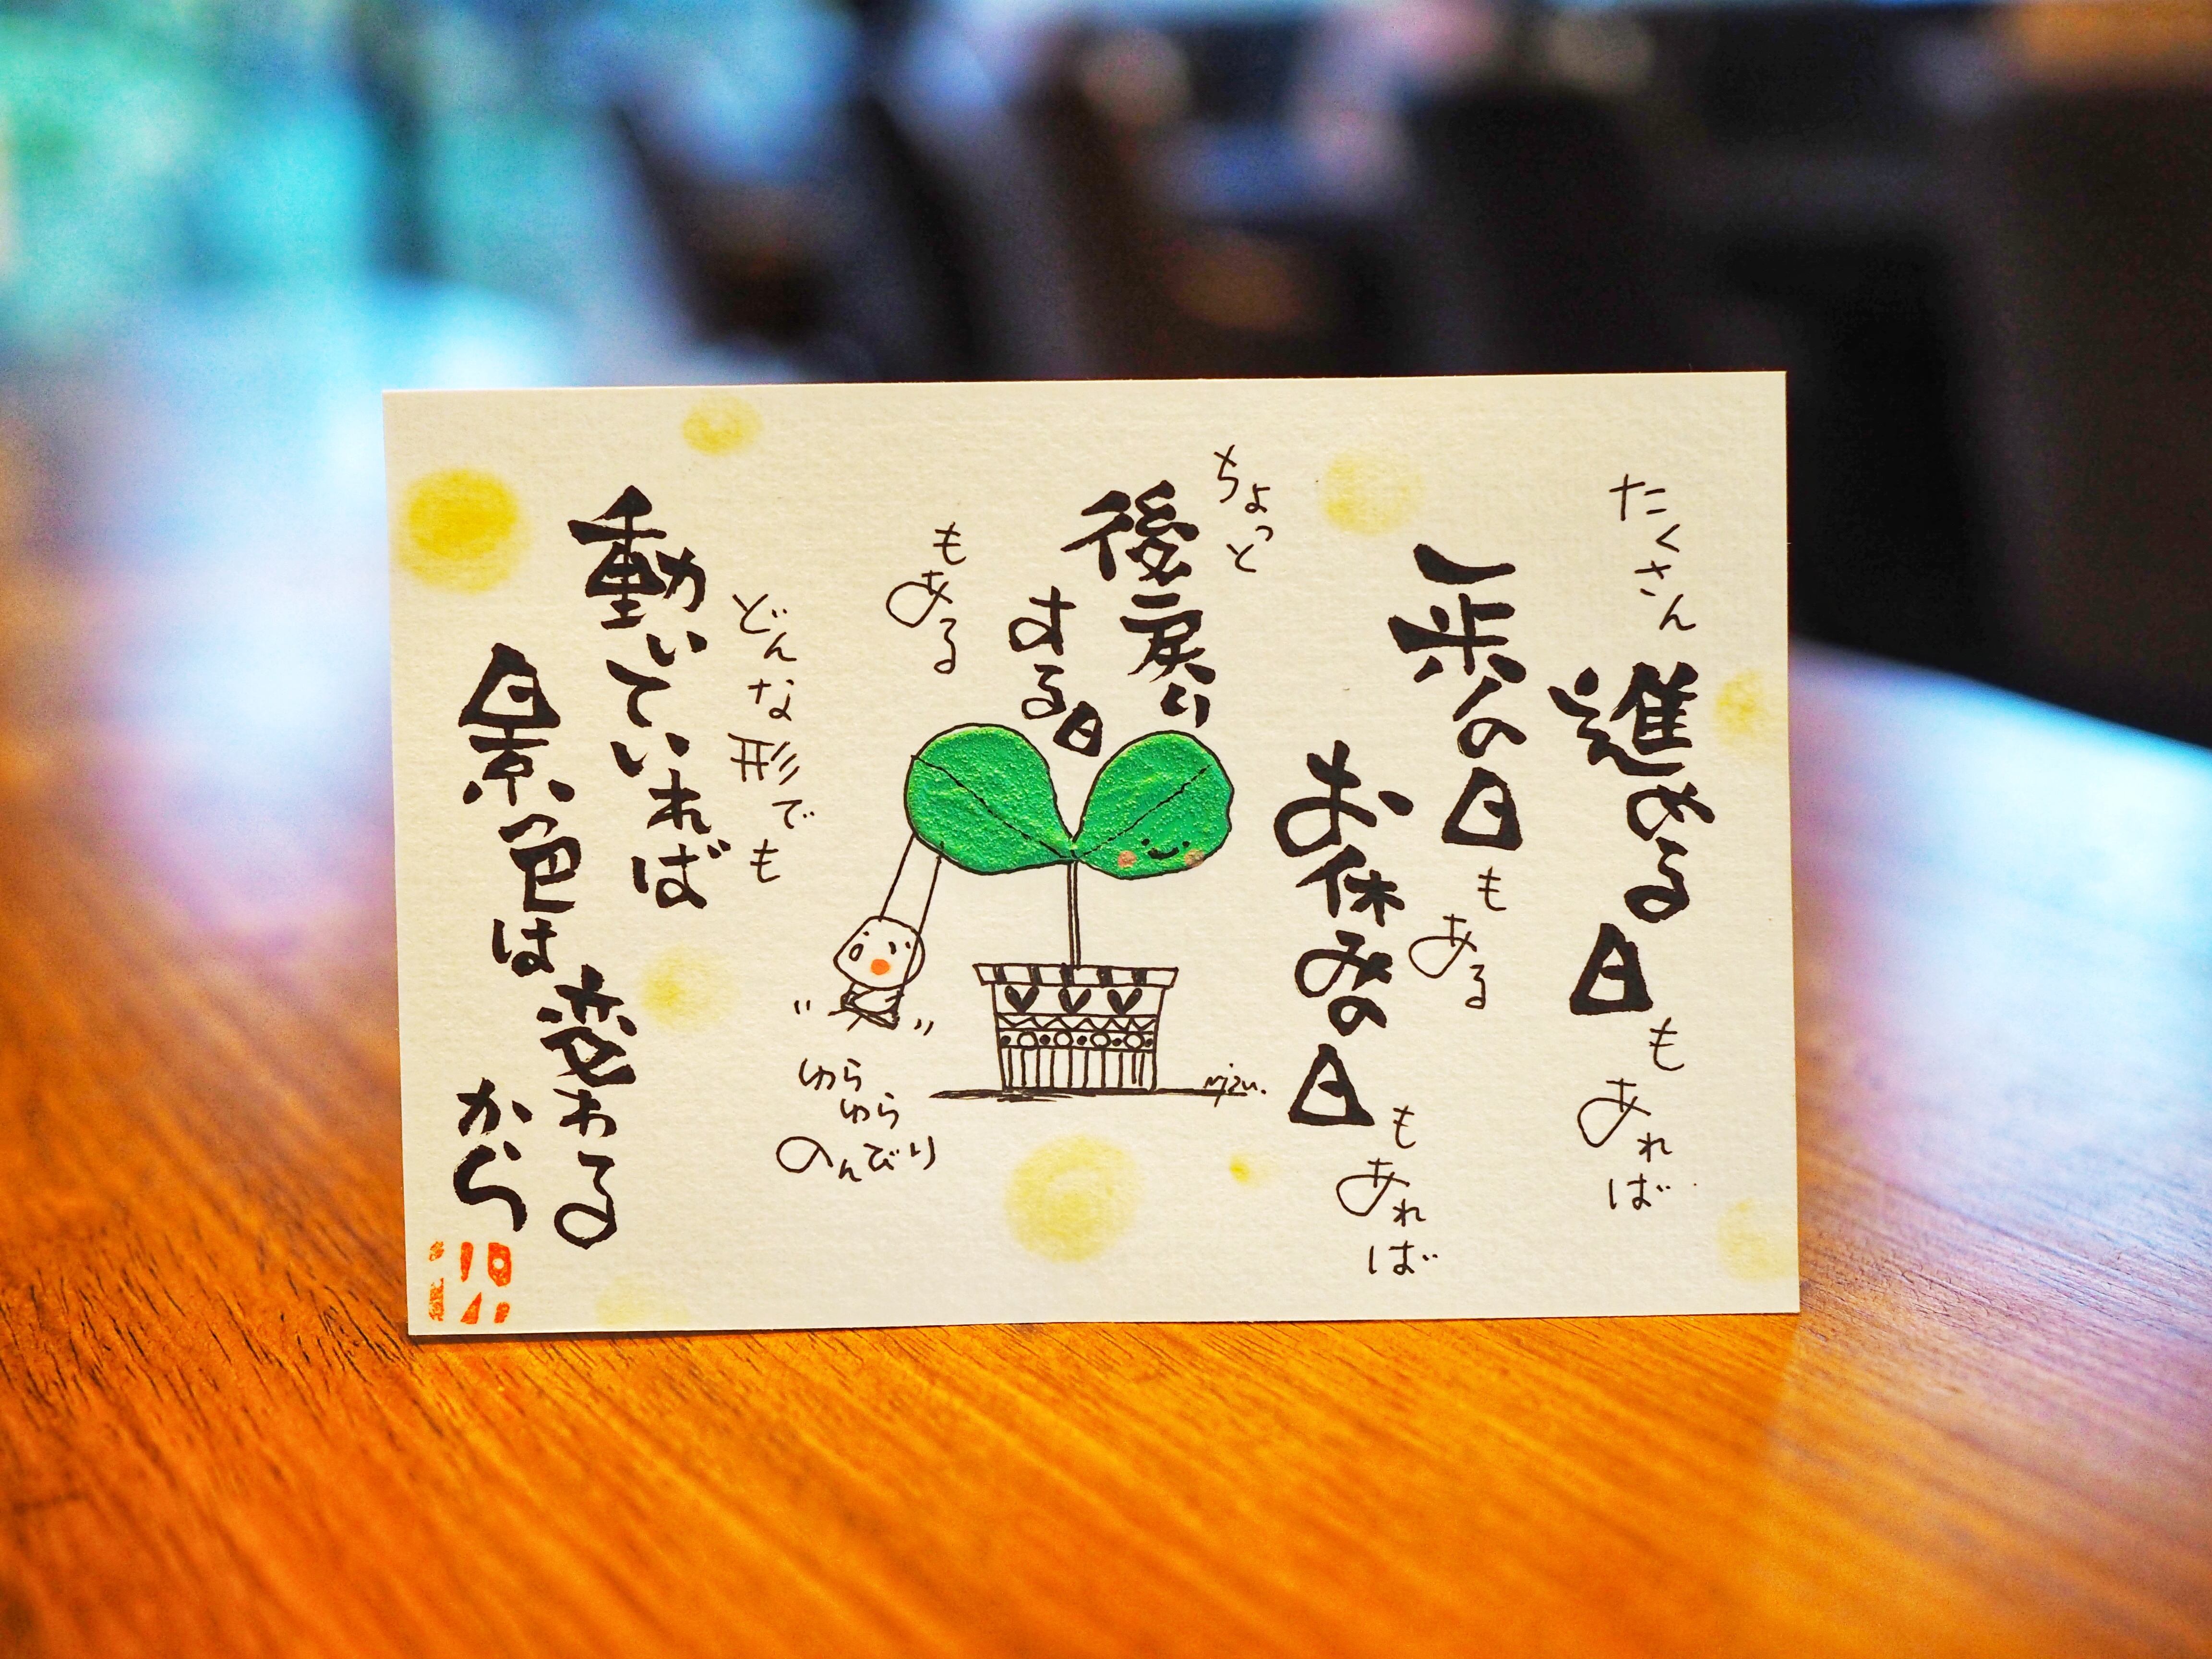 たくさん
進める日
もあれば
一歩の日
もある
お休みの日
もあれば
ちょっと
後戻り
する日
もある
どんな形でも
動いていれば
景色は
変わる
から
ゆら
ゆら
のんびり